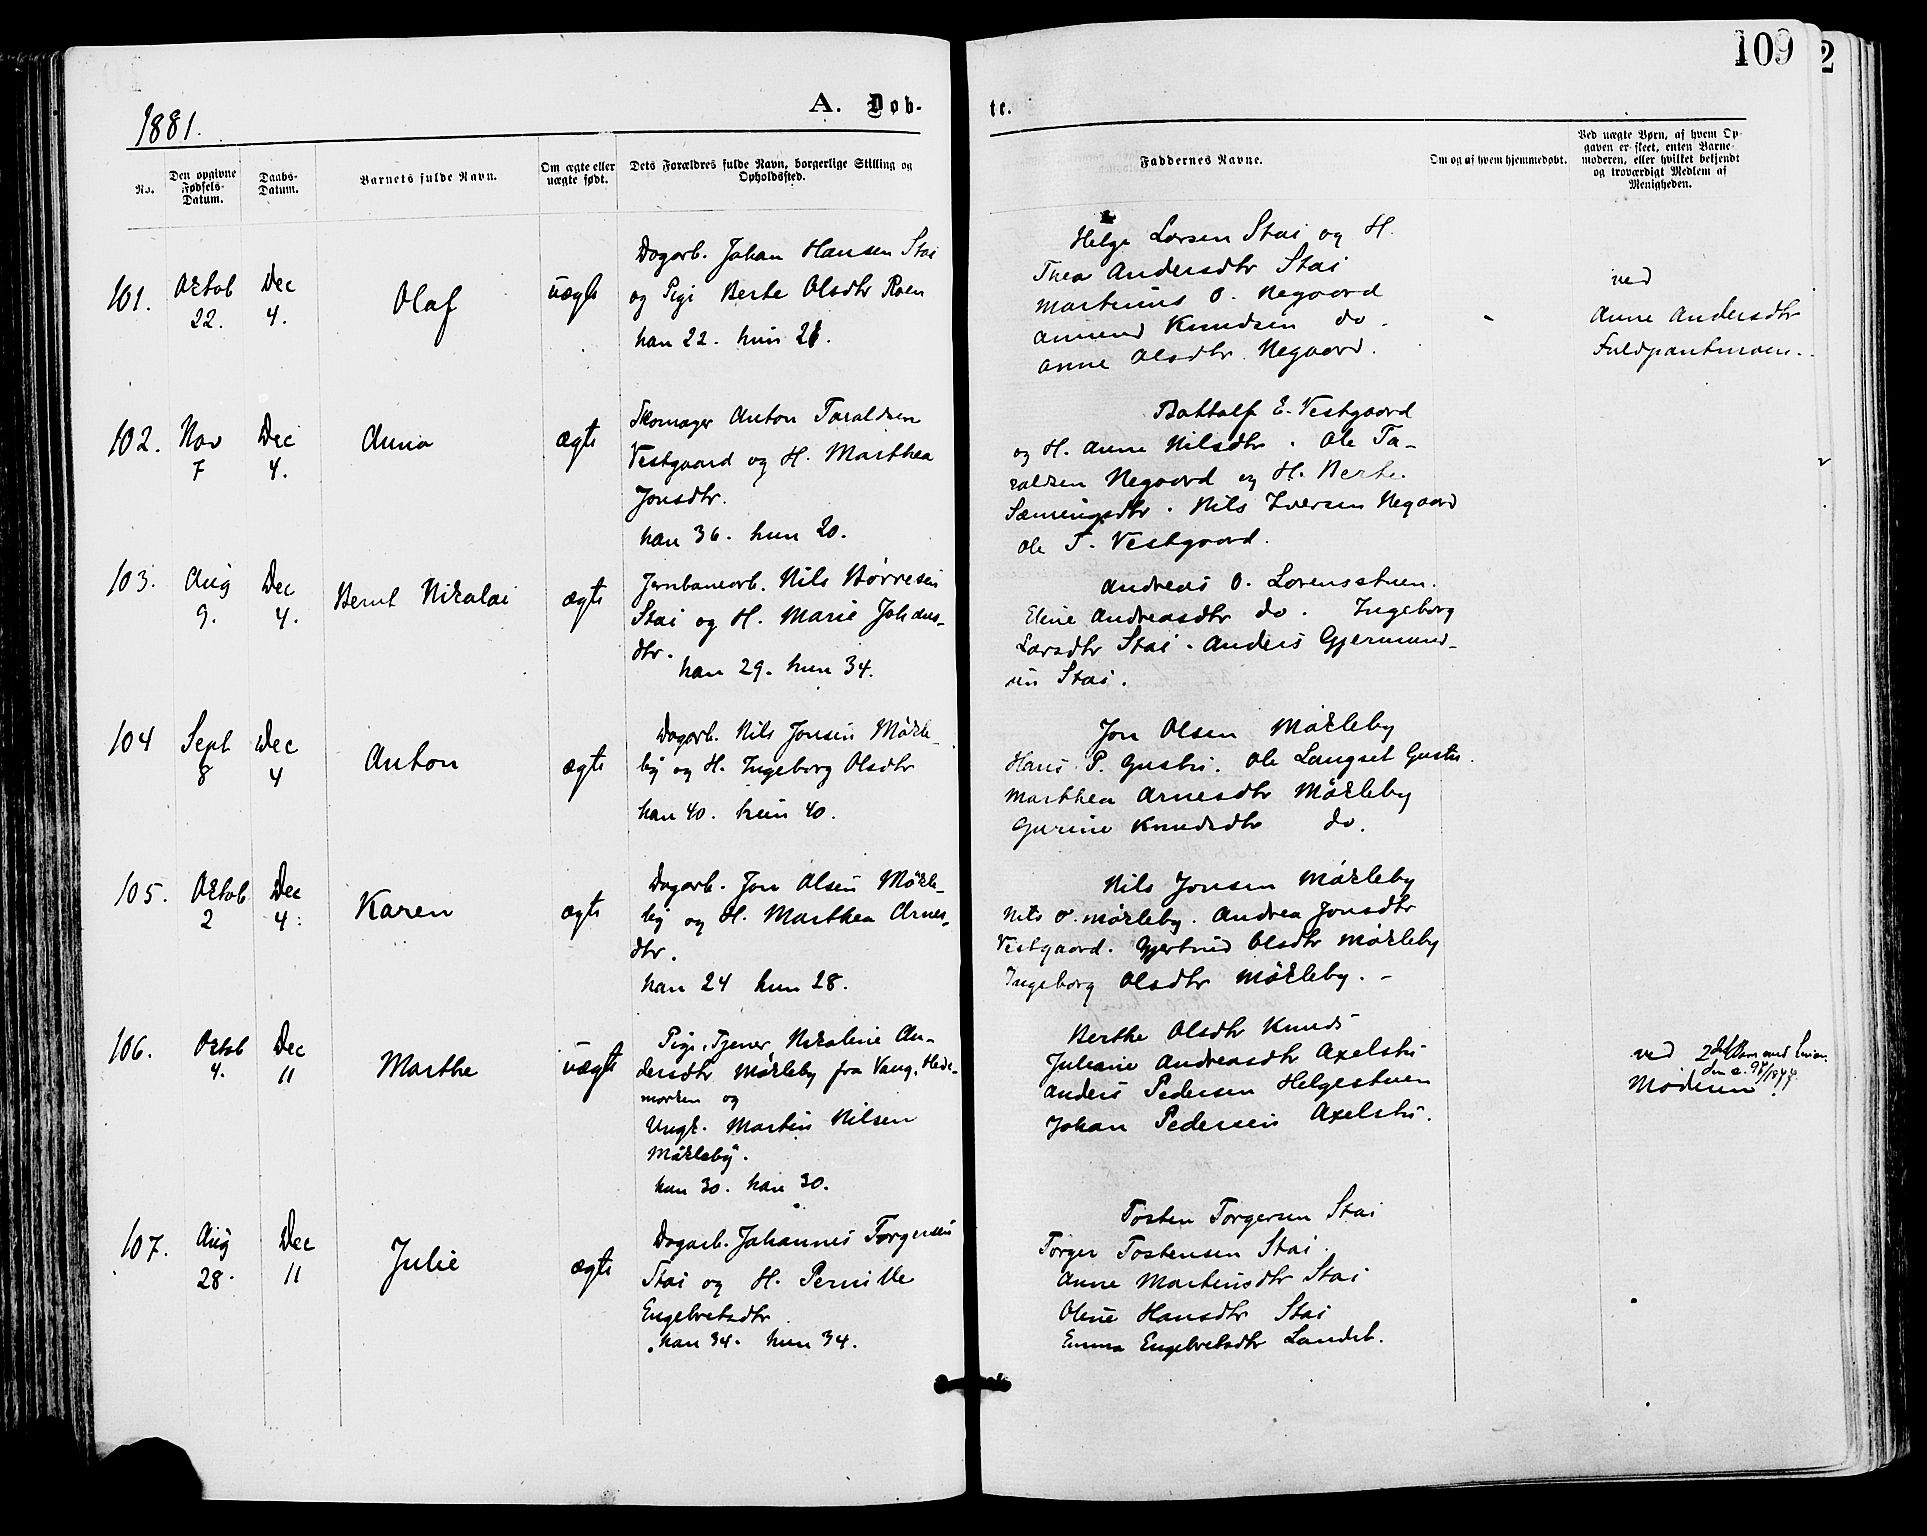 109
2
1881.
A. Døb-
te.
No.
Den opgivne Fødsels-Datum.
Daabs-Datum.
Barnets fulde Navn.
Om ægte eller uægte født.
Dets Forældres fulde Navn, borgerlige Stilling og Opholdssted.
Faddernes Navne.
Om og af hvem hjemmedøbt.
Ved uægte Børn, af hvem Opgaven er skeet, enten Barnemoderen, eller hvilket bekjendt og troværdigt Medlem af Menigheden.
101. Octob 22. Dec 4. Olaf uægte
Dagarb. Johan Hansen Stai
og Pige Berte Olsdtr Roen
han 22. hun 21.
Helge Larsen Stai og H.
Thea Andersdtr Stai
Martinus O. Negaard
Amund Knudsen do.
Anne Olsdtr. Negaard.
ved
Anne Andersdtr
102. Nov 7 Dec 4. Anna ægte
Skomager Anton Taraldsen
Vestgaard og H. Marthea
Jonsdtr.
han 36. hun 20.
Bottolf E. Vestgaard
og H. Anne Nilsdtr. Ole Ta-
raldsen Negaard og H. Berte
Sæmingsdtr. Nils Iversen Negaard
Ole T. Vestgaard.
103. Aug 9. Dec 4. Bernt Nikolai ægte
Jernbanearb. Nils Børresen
Stai og H. Marie Johans-
dtr.
han 29. hun 34.
Andreas O. Lorensstuen.
Eline Andreasdtr do. Ingeborg
Larsdtr Stai. Anders Gjermund-
sen Stai.
104 Sept 8 Dec 4 Anton ægte
Dagarb. Nils Jonsen Mørkle-
by og H. Ingeborg Olsdtr
han 40. hun 40.
Jon Olsen Mørkleby
Hans P. Gustu. Ole Langset Gustu.
Marthea Arnesdtr Mørkleby
Gurine Knudsdtr do.
105. Octob 2 Dec 4. Karen ægte
Dagarb. Jon Olsen Mørkle-
by og H. Marthea Arnes-
dtr.
han 24 hun 28.
Nils Jonsen Mørkleby
Nils O. Mørkleby. Andrea Jonsdtr
Vestgaard. Gjertrud Olsdtr Mørkleby
Ingeborg Olsdtr Mørkleby. -
106. Octob 4. Dec 11 Marthe uægte
Pige, Tjener, Nikoline An-
dersdtr Mørkleby fra Vang, Hede-
marken og
Ungk. Martin Nilsen
Mørkleby.
hun 30. han 30.
Berthe Olsdtr Knuds
Juliane Andreasdtr Axelstu
Anders Pedersen Helgestuen
Johan Pedersen Axelstu.
ved
Moderen
107. Aug 28. Dec 11 Julie ægte
Dagarb. Johannes Torgersen
Stai og H. Pernille
Engebretsdtr
han 34. hun 34.
Tosten Torgersen Stai
Torger Tostensen Stai.
Anne Martinsdtr Stai
Oline Hansdtr Stai
Emma Engebretsdtr Landet.